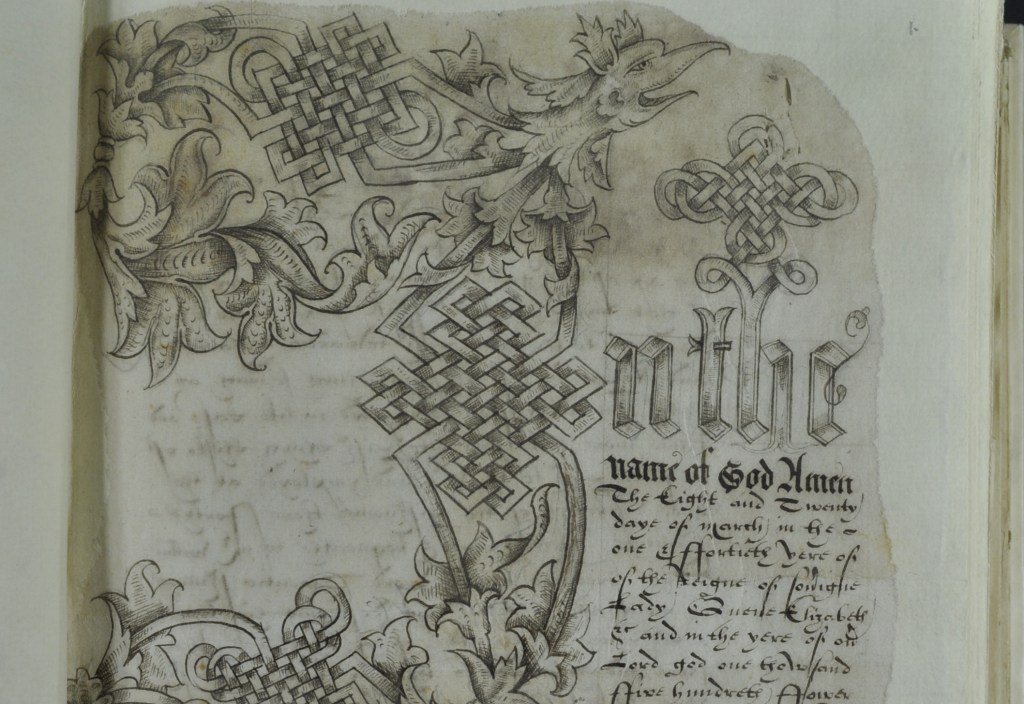 1.
n the
name of God Amen
The Eight and Twenty
daye of march in the
one & ffortieth yere of
of the Reigne of
Lady Quene Elizabeth
&c and in the yere of our
Lord god one thowsand
ffive hundreth